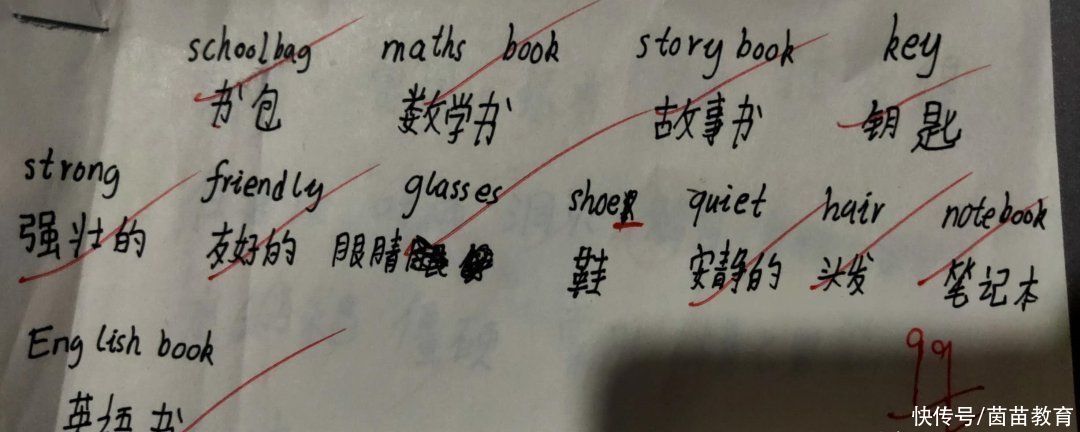 schoolbag maths book story book key
书包 数学书 故事书 钥匙
strong friendly glasses shoe quiet hair notebook
强壮的 友好的 眼睛 鞋 安静的 头发 笔记本
English book
99
英语书
快传号/茵苗教育